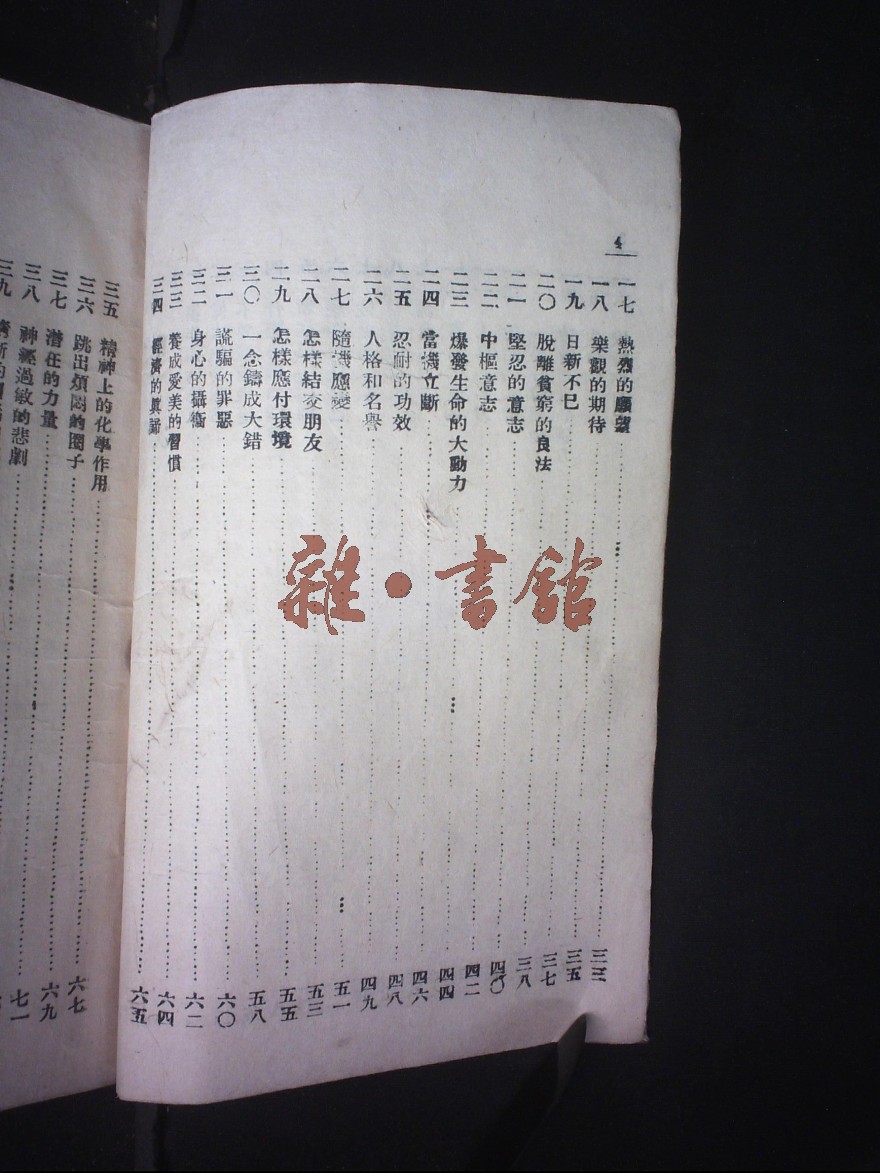 4
一七 熱烈的願望 三三
一八 樂觀的期待 三五
一九 日新不已 三七
二〇 脫離貧窮的良法 三八
二一 堅忍的意志 四〇
二二 中樞意志 四二
二三 爆發生命的大動力 四四
二四 當機立斷 四六
二五 忍耐的功效 四八
二六 人格和名譽 四九
二七 隨機應變 五一
二八 怎樣結交朋友 五三
二九 怎樣應付環境 五五
三〇 一念鑄成大錯 五八
三一 謊騙的罪惡 六〇
三二 身心的攝衞 六二
三三 養成愛美的習慣 六四
三四 經濟的眞諦 六五
三五 精神上的化學作用 六七
三六 跳出煩悶的圈子 六九
三七 潛在的力量 七一
三八 神經過敏的悲劇
三九
雜·書館